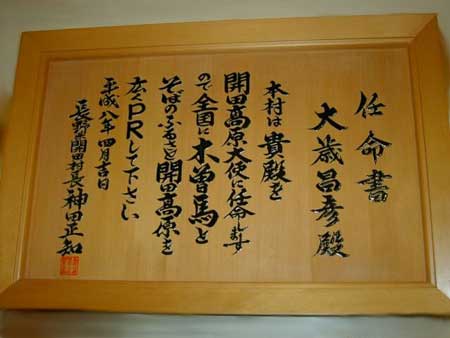 任命書
大歳昌彦殿
本村は貴殿を
開田高原大使に任命します
ので全国に木曽馬と
そばのふるさと開田高原を
広くPRして下さい
平成八年四月吉日
長野県開田村長 神田正和